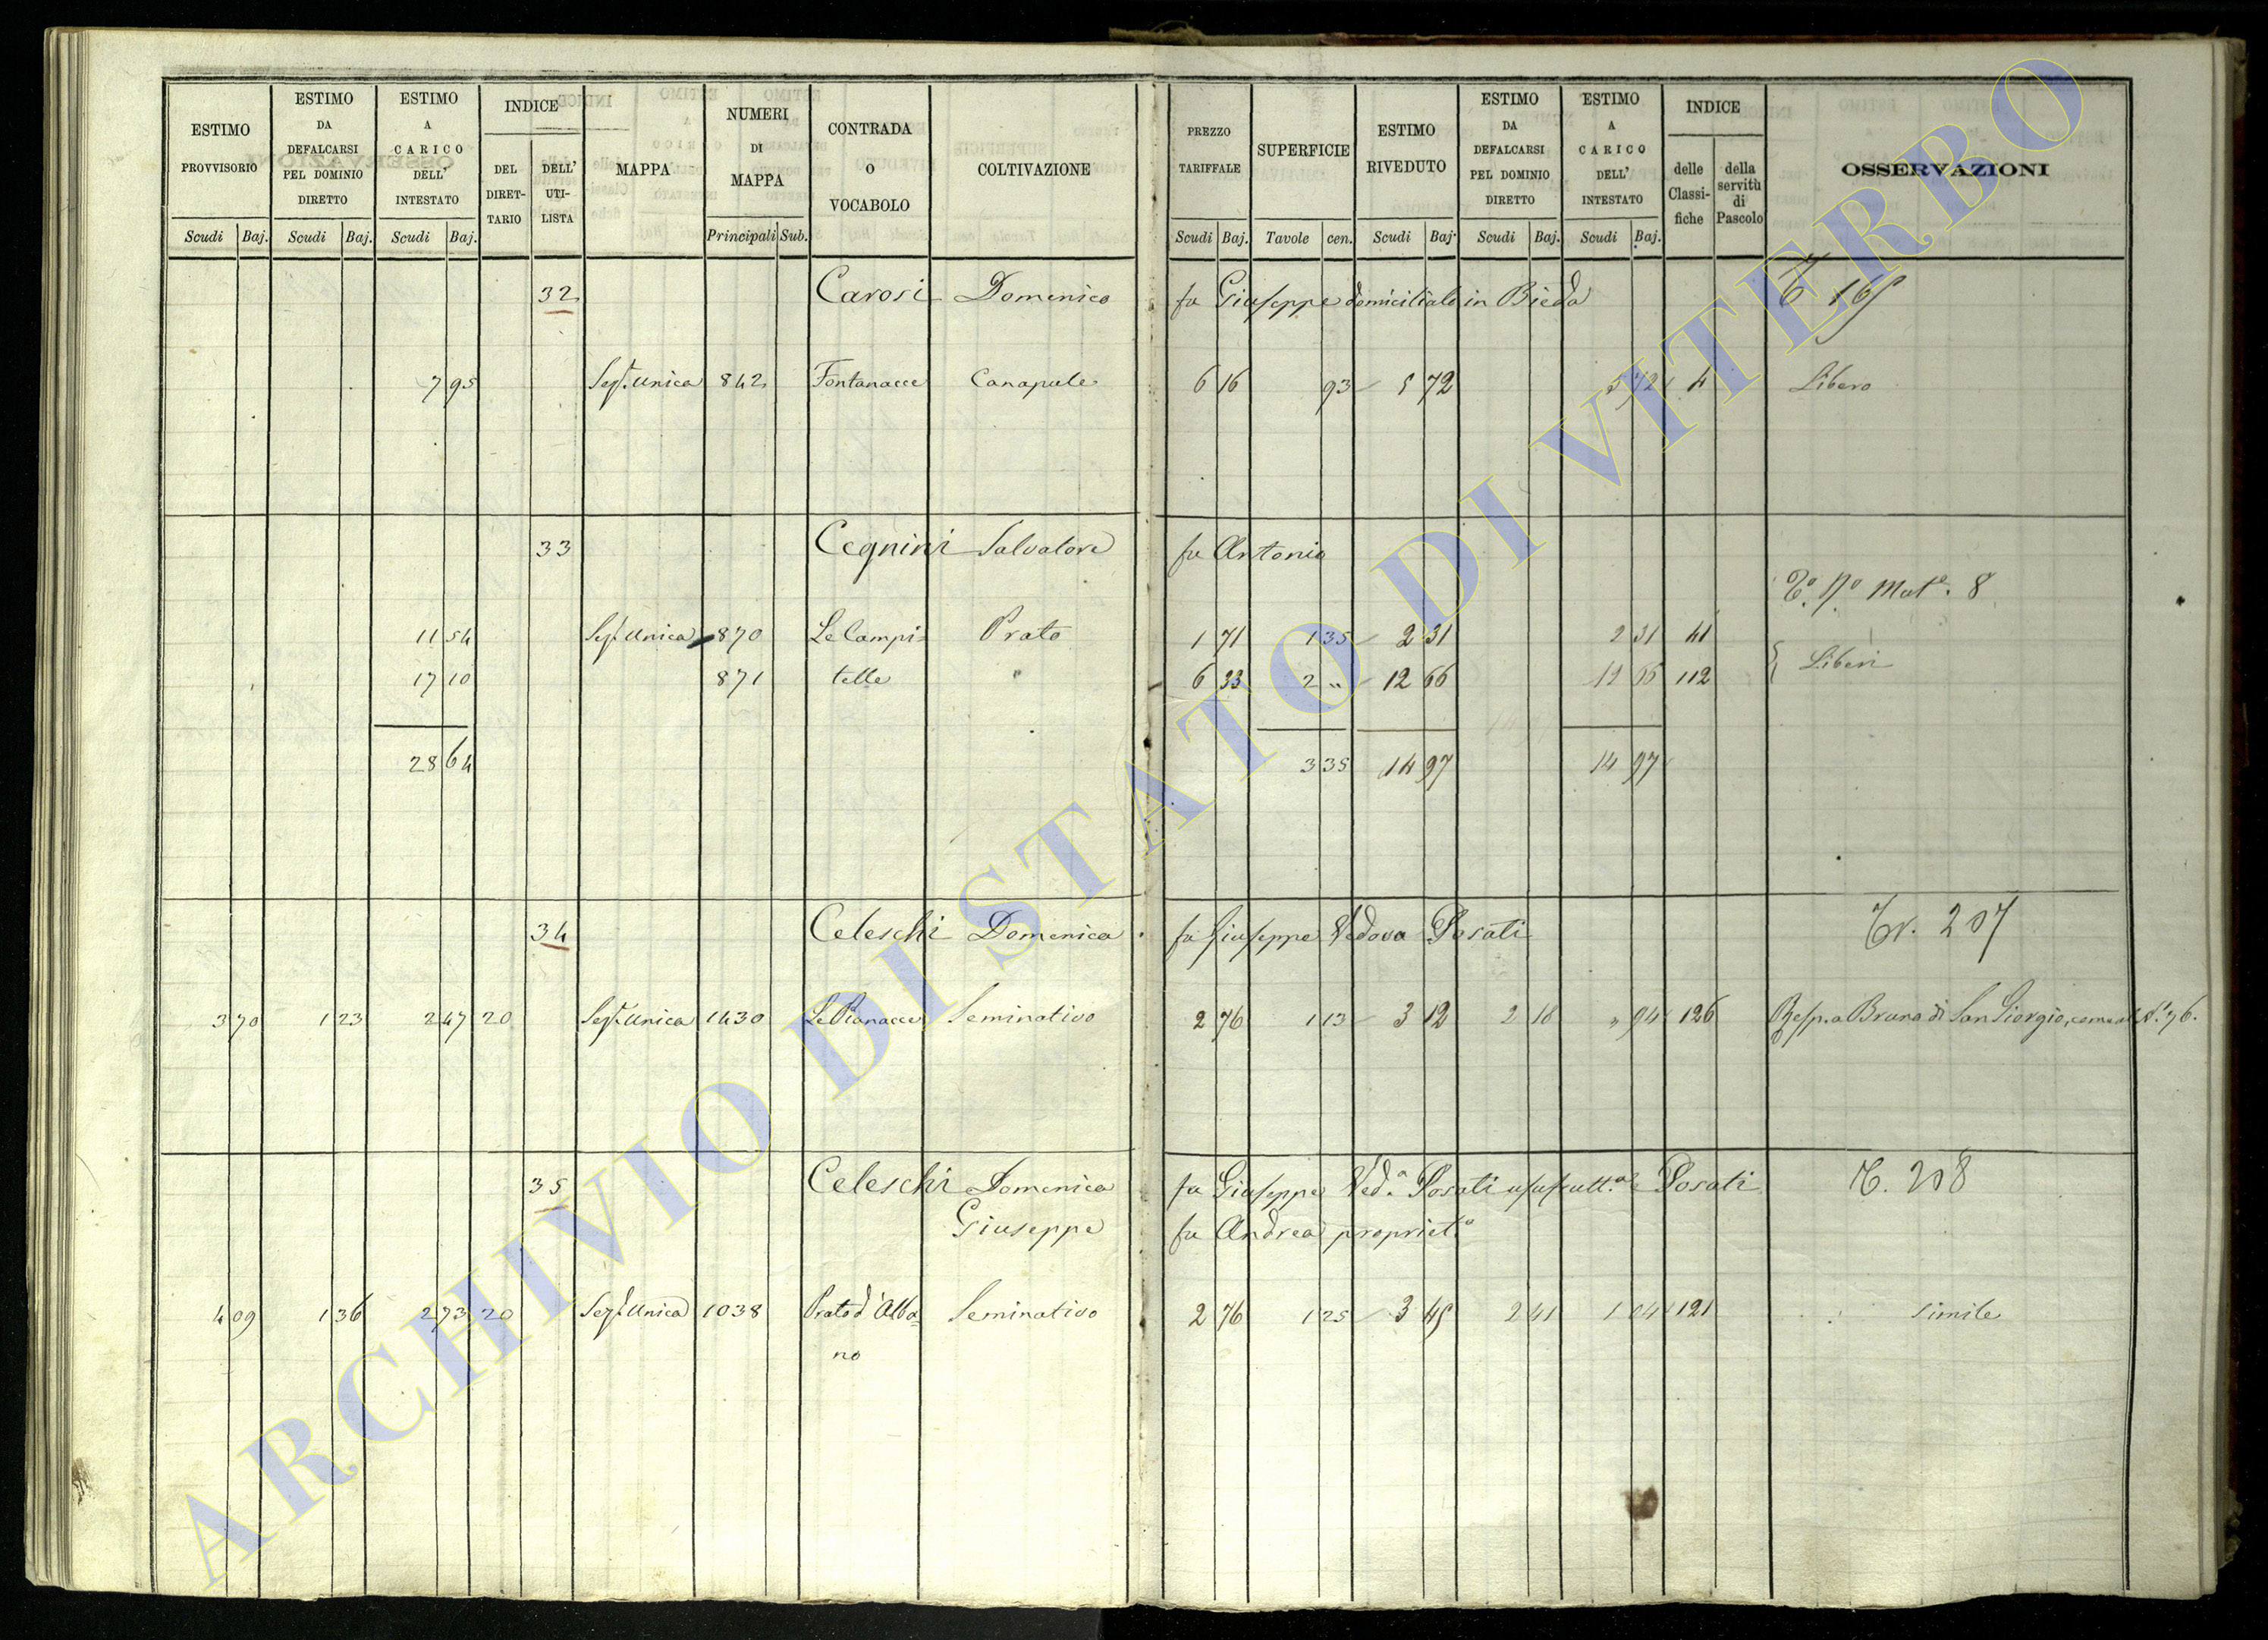 ESTIMO PROVVISORIO
ESTIMO DA DEFALCARSI PEL DOMINIO DIRETTO
ESTIMO A CARICO DELL' INTESTATO
INDICE
DEL DIRET- TARIO
DELL' UTI- LISTA
MAPPA
NUMERI DI MAPPA
CONTRADA O VOCABOLO
COLTIVAZIONE
PREZZO TARIFFALE
SUPERFICIE
ESTIMO RIVEDUTO
ESTIMO DA DEFALCARSI PEL DOMINIO DIRETTO
ESTIMO A CARICO DELL' INTESTATO
INDICE
delle Classi- fiche
della servitù di Pascolo
OSSERVAZIONI
Scudi Baj. Scudi Baj. Scudi Baj. Principali Sub. Scudi Baj. Tavole cen. Scudi Baj. Scudi Baj. Scudi Baj.
32 Carosi Domenico fu Giuseppe domiciliato in Bieda
7 95 Sez. Unica 842 Fontanacce Canapule 6 16 93 5 72 5 72 4 Libero
33 Cegnini Salvatore fu Antonio
8
11 54 Sez. Unica 870 Le Campi= Prato 1 71 1 35 2 31 2 31 41
Liberi
17 10 871 telle " 6 33 2 " 12 66 12 66 112
28 64 3 35 14 97 14 97
34 Celeschi Domenica fu Giuseppe Vedova Posati Tr. 207
3 70 1 23 2 47 20 Sez. Unica 1430 Le Pianacce Seminativo 2 76 1 13 3 12 2 18 " 94 126 Resp. a Bruno di San Giorgio, come al N. 76.
35 Celeschi Domenica fu Giuseppe Ved.a Posati usufrutt.a e Posati T. 208
Giuseppe fu Andrea propriet.o
4 09 1 36 2 73 20 Sez. Unica 1038 Prato d'Alba= Seminativo 2 76 1 25 3 45 2 41 1 04 121 Simile
no
ARCHIVIO DI STATO DI VITERBO